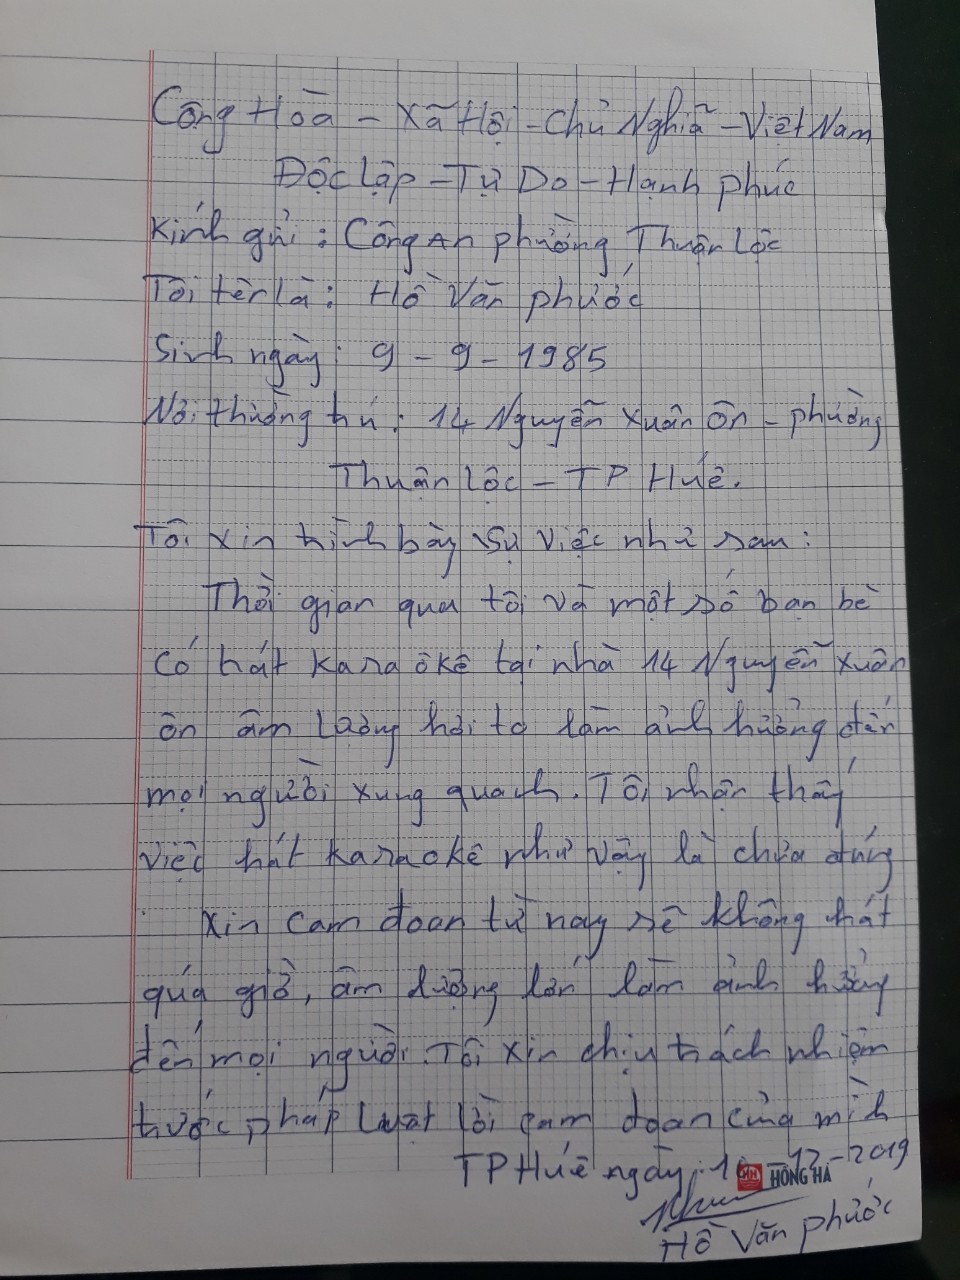 Cộng Hòa - Xã Hội - Chủ Nghĩa - Việt Nam
Độc lập - Tự Do - Hạnh phúc
Kính gửi : Công An phường Thuận Lộc
Tôi tên là : Hồ Văn phước
Sinh ngày : 9 - 9 - 1985
Nơi thường trú : 14 Nguyễn Xuân Ôn - phường
Thuận Lộc - TP Huế.
Tôi xin trình bày sự việc như sau :
Thời gian qua tôi và một số bạn bè
có hát karaôkê tại nhà 14 Nguyễn Xuân
ôn âm lượng hơi to làm ảnh hưởng đến
mọi người xung quanh. Tôi nhận thấy
việc hát karaokê như vậy là chưa đúng
Xin cam đoan từ nay sẽ không hát
quá giờ, âm lượng lớn làm ảnh hưởng
đến mọi người. Tôi xin chịu trách nhiệm
trước pháp luật lời cam đoan của mình
TP Huế ngày : -12-2019
HH HỒNG HÀ
Hồ Văn phước